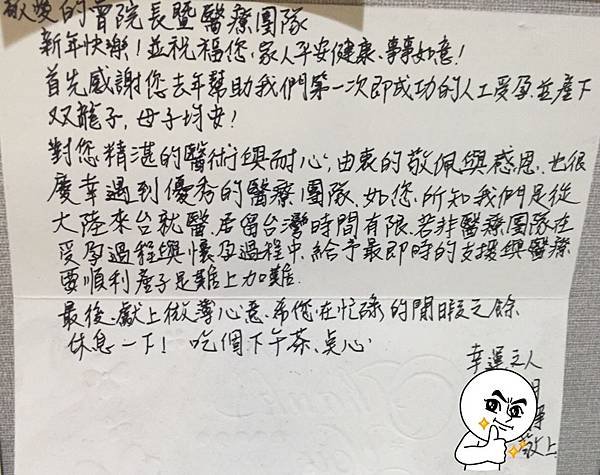 敬愛的曾院長暨醫療團隊
新年快樂！並祝福您、家人平安健康、事事如意！
首先感謝您去年幫助我們第一次即成功的人工受孕並產下
双龍子，母子均安！
對您精湛的醫術與耐心，由衷的敬佩與感恩、也很
慶幸遇到優秀的醫療團隊、如您、所知我們是從
大陸來台就醫、居留台灣時間有限、若非醫療團隊在
受孕過程與懷孕過程中、給予最即時的支援與醫療
要順利產子是難上加難、
最後、獻上微薄心意、希您、在忙碌的閒暇之餘
休息一下！吃個下午茶、點心
幸運之人
敬上